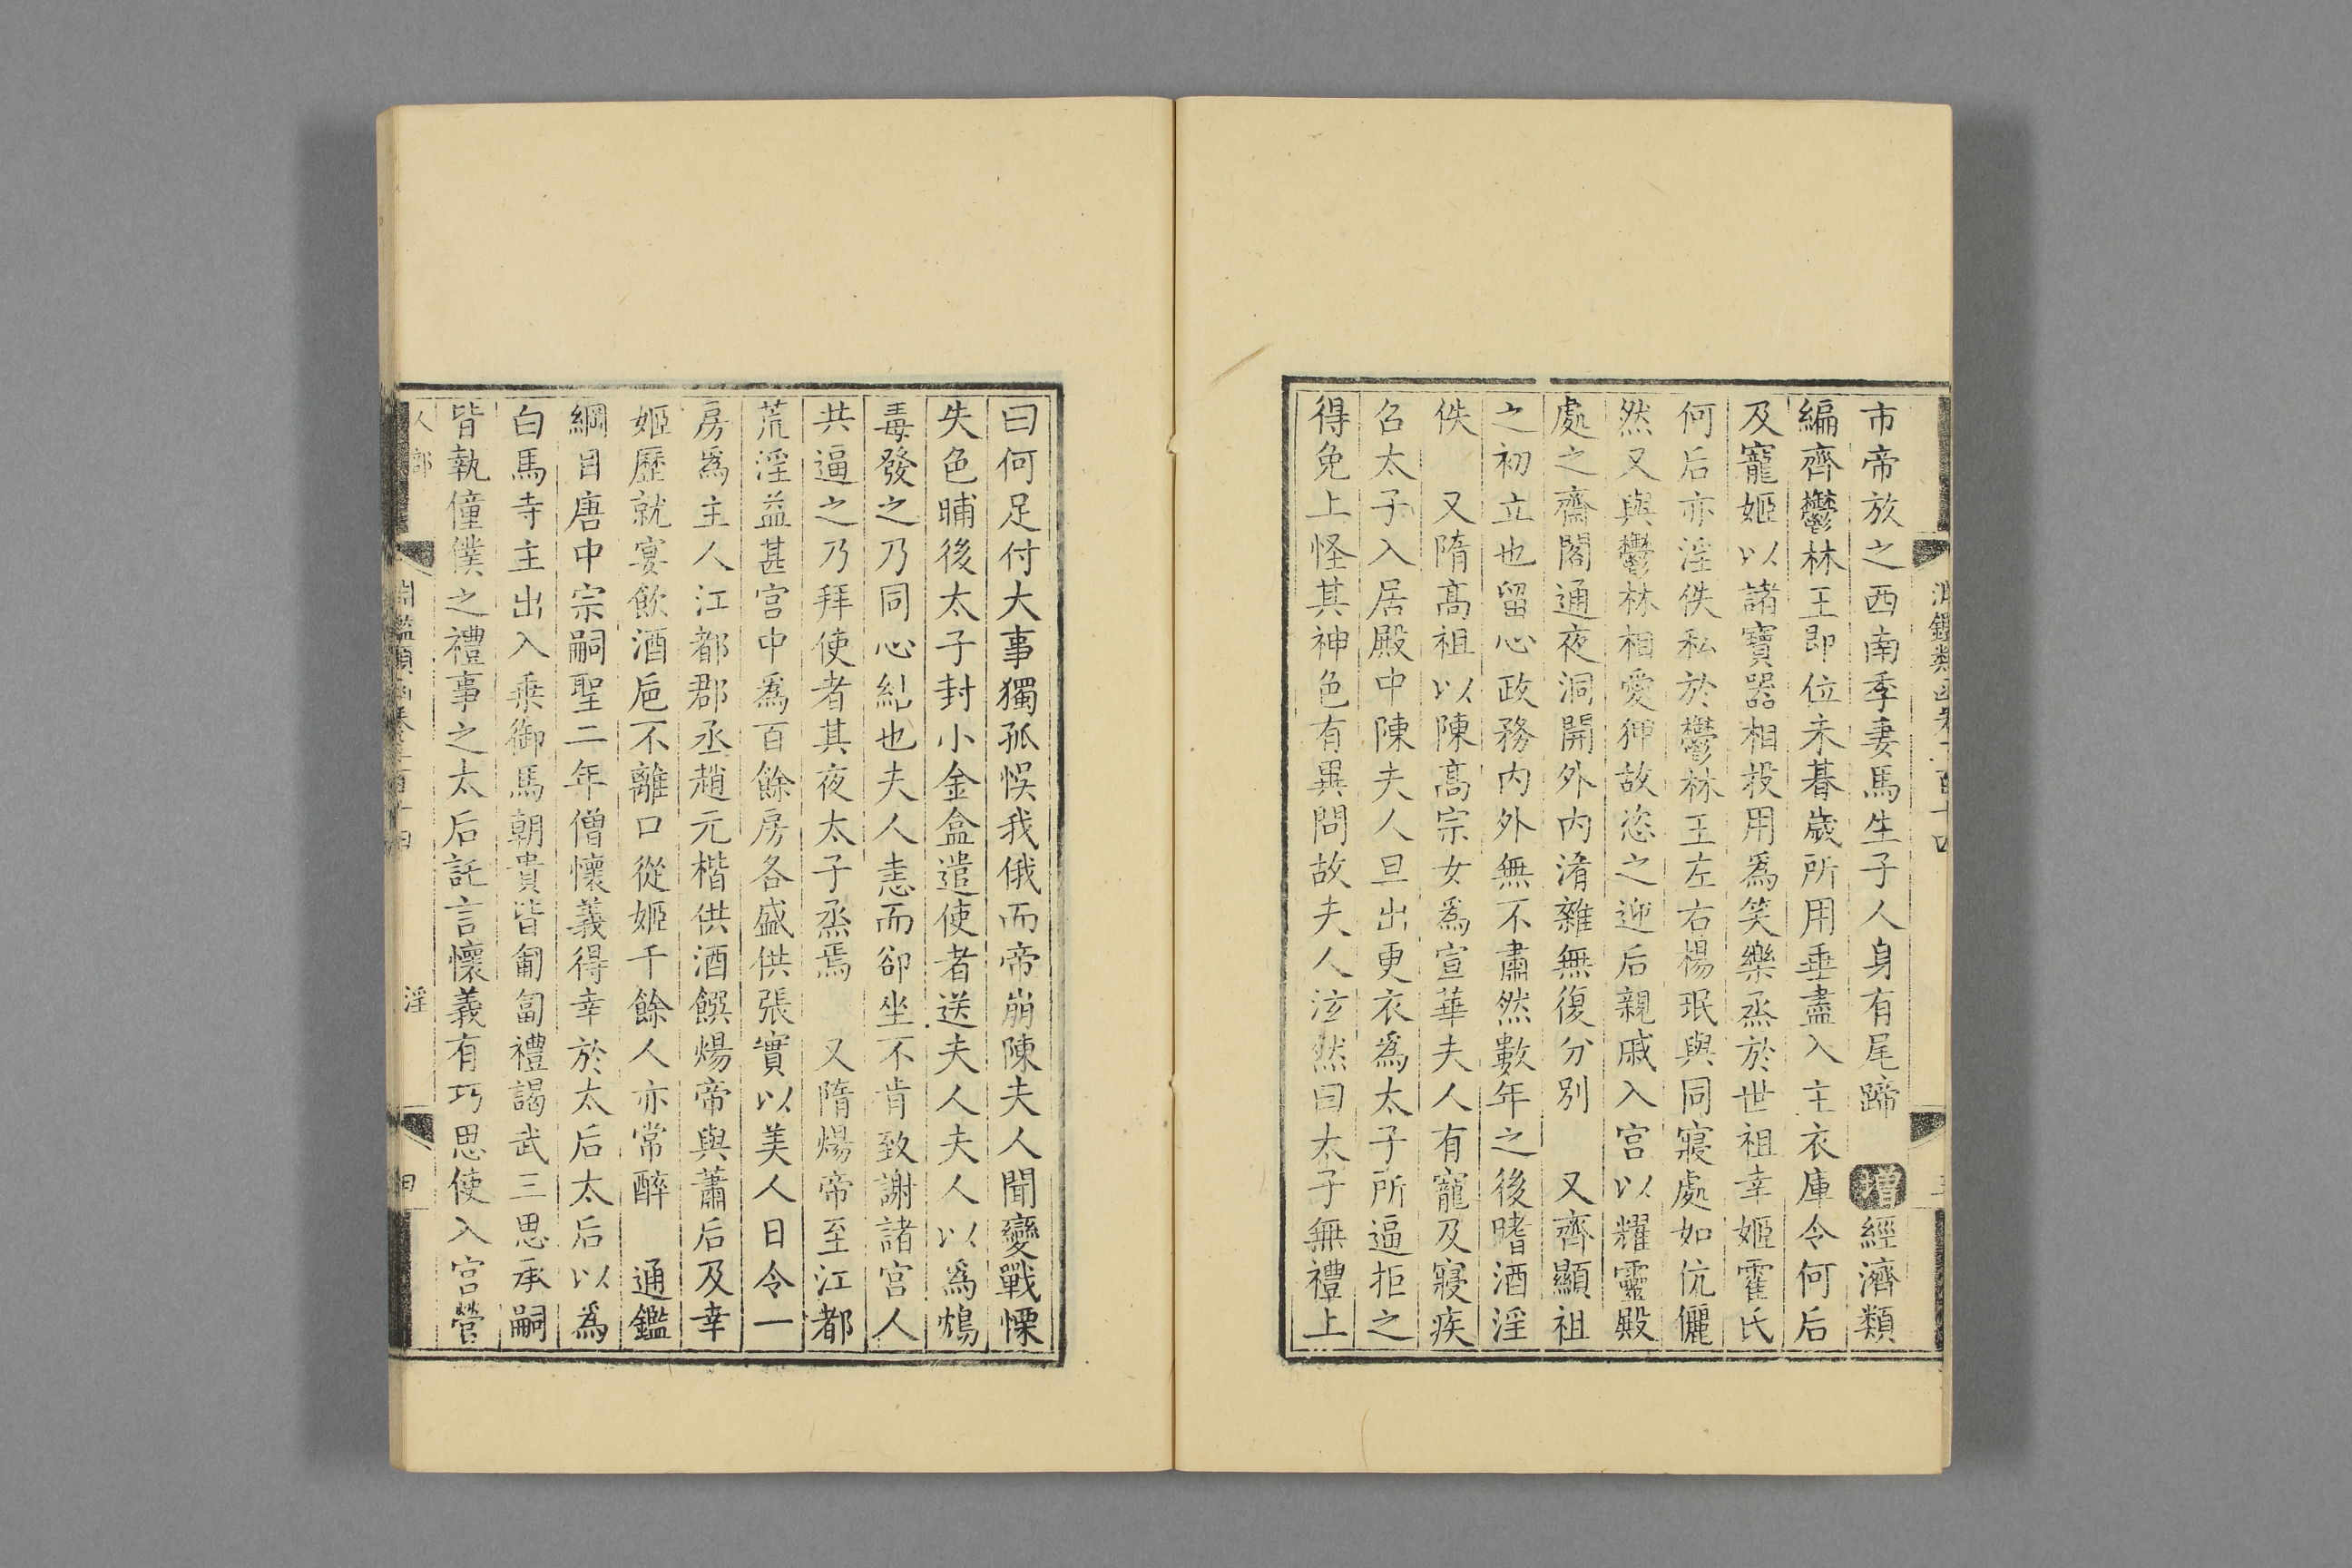 市帝放之西南季妻馬生子人身有尾蹄　增經濟類
編齊鬱林王即位未朞歲所用垂盡入主衣庫令何后
及寵姬以諸寶器相投用爲笑樂烝於世祖幸姬霍氏
何后亦淫佚私於鬱林王左右楊珉與同寢處如伉儷
然又與鬱林相愛狎故恣之迎后親戚入宮以耀靈殿
處之齋閤通夜洞開外內淆雜無復分別　又齊顯祖
之初立也留心政務內外無不肅然數年之後嗜酒淫
佚　又隋高祖以陳高宗女爲宣華夫人有寵及寢疾
召太子入居殿中陳夫人旦出更衣爲太子所逼拒之
得免上怪其神色有異問故夫人泫然曰太子無禮上
曰何足付大事獨孤悞我俄而帝崩陳夫人聞變戰慄
失色晡後太子封小金盒遣使者送夫人夫人以爲鴆
毒發之乃同心結也夫人恚而卻坐不肯致謝諸宮人
共逼之乃拜使者其夜太子烝焉　又隋煬帝至江都
荒淫益甚宮中爲百餘房各盛供張實以美人日令一
房爲主人江都郡丞趙元楷供酒饌煬帝與蕭后及幸
姬歷就宴飲酒巵不離口從姬千餘人亦常醉　通鑑
綱目唐中宗嗣聖二年僧懷義得幸於太后太后以爲
白馬寺主出入乘御馬朝貴皆匍匐禮謁武三思承嗣
皆執僮僕之禮事之太后託言懷義有巧思使入宮營
人部
淵鑑類函卷三百十四
淫
四